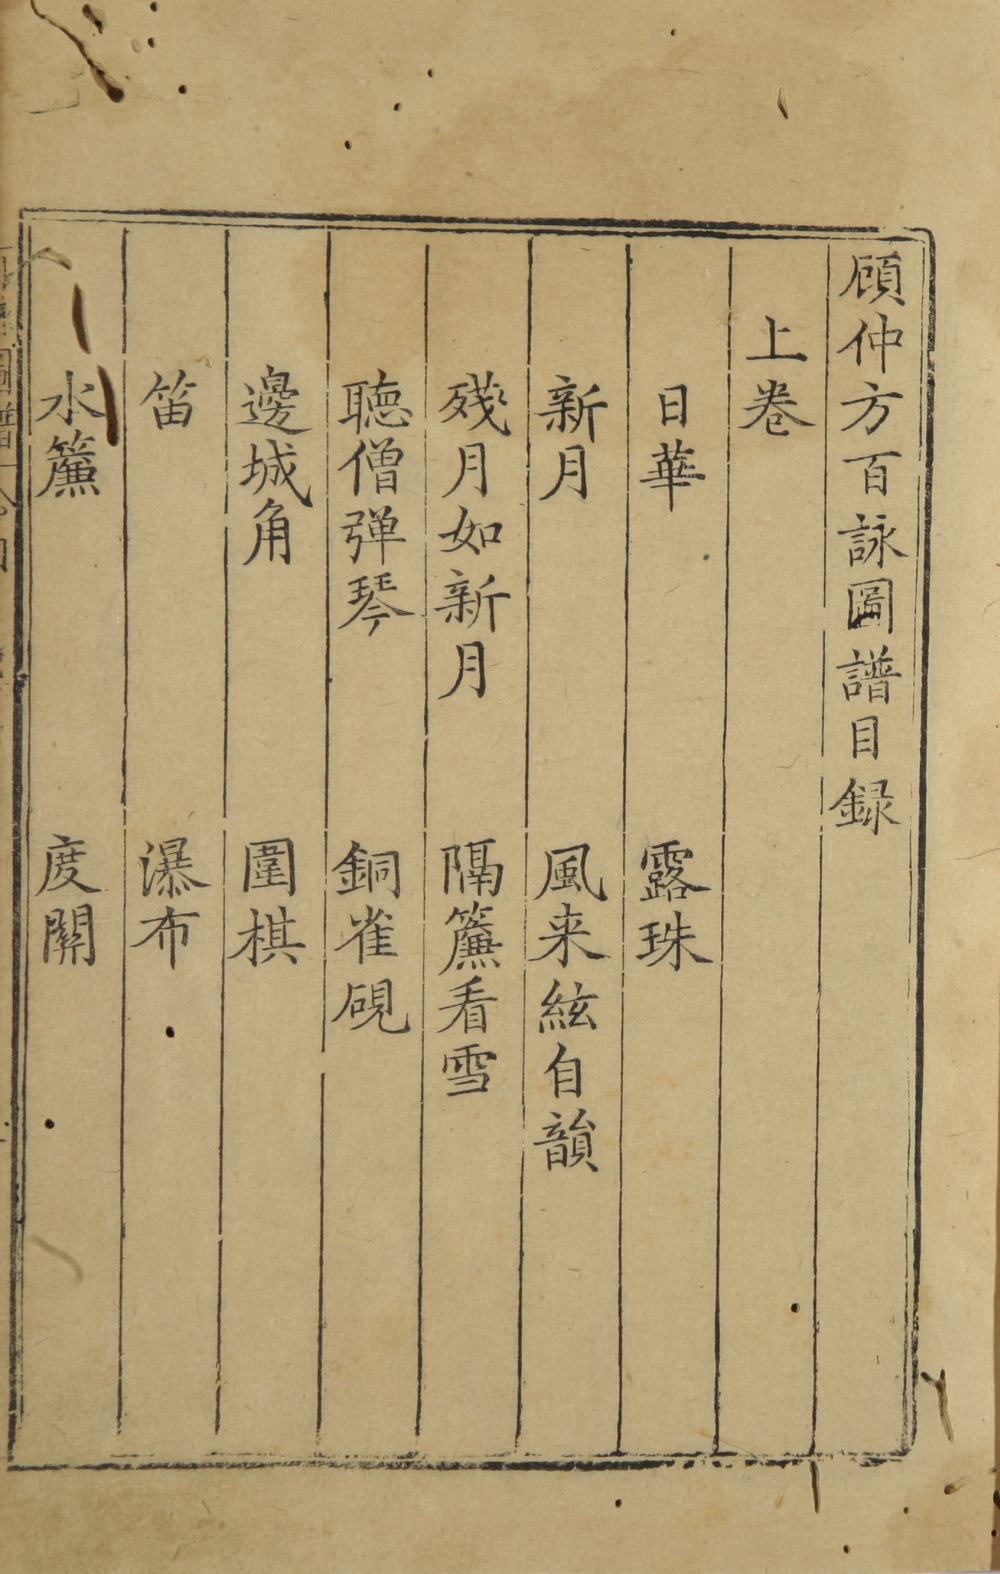 顧仲方百詠圖譜目録
上卷
日華　露珠
新月　風来絃自韻
殘月如新月　隔簾看雪
聽僧弾琴　銅雀硯
邊城角　圍棋
笛　瀑布
水簾　度關